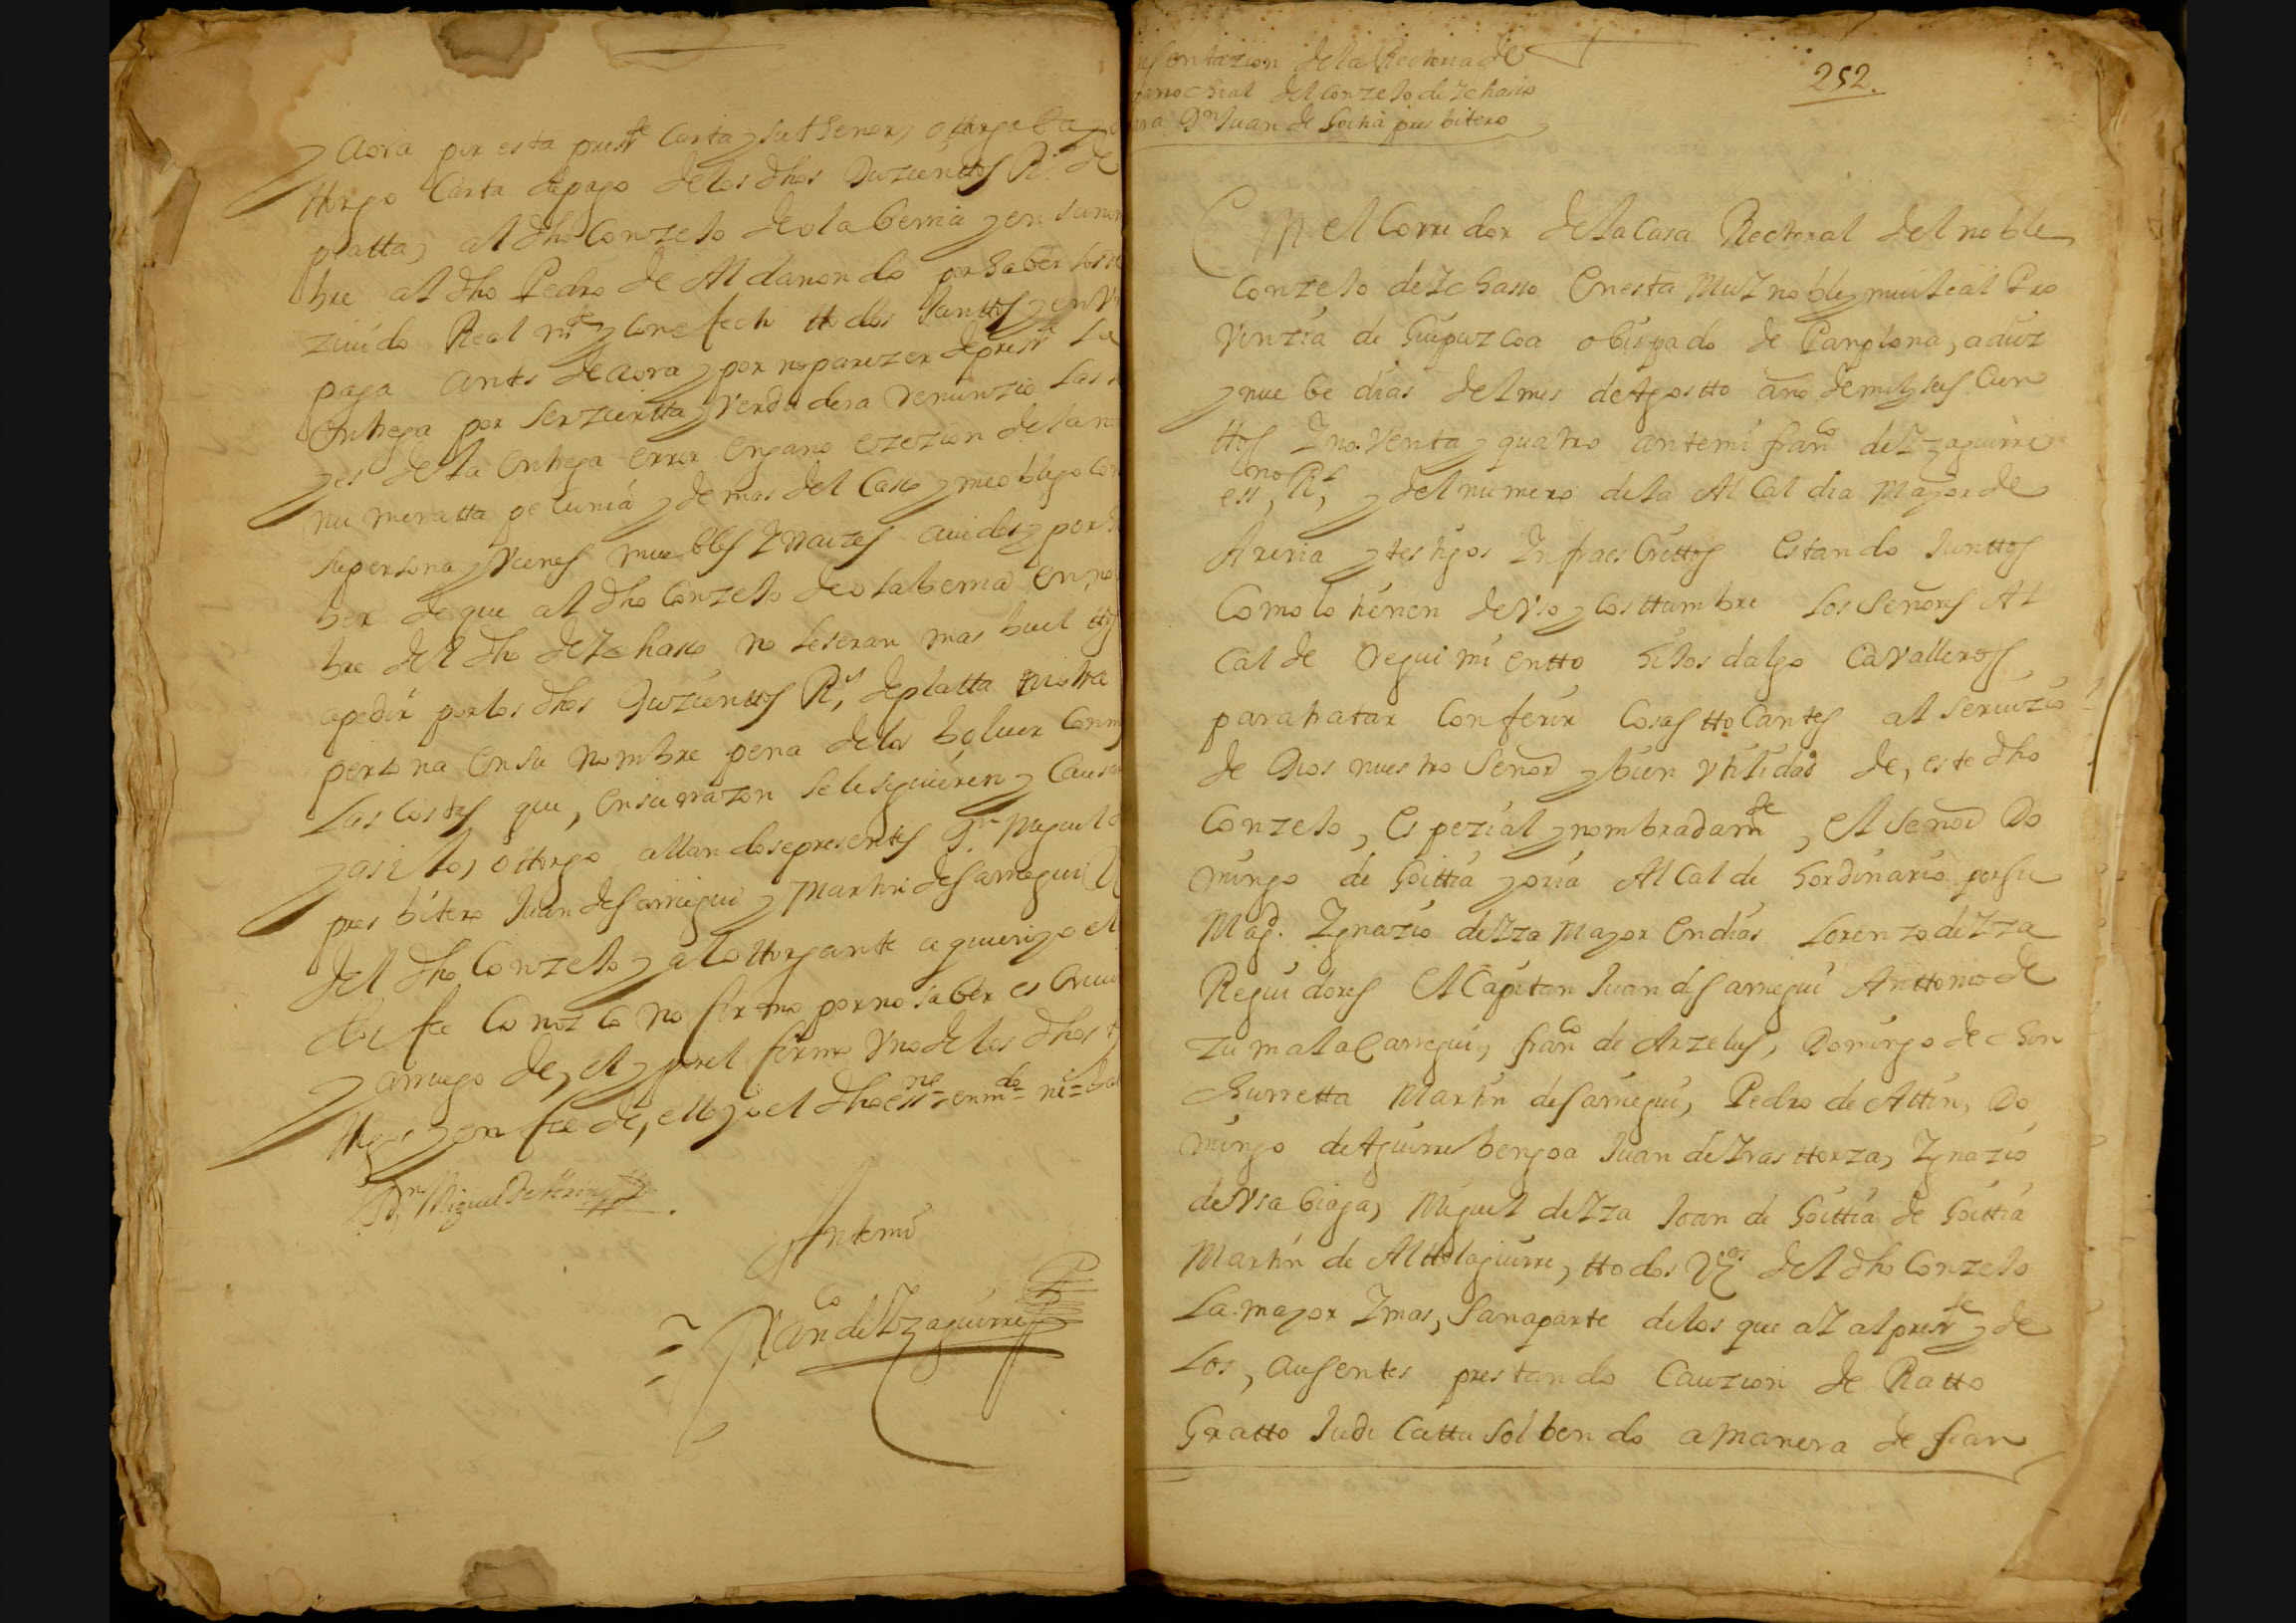 y aora por esta presẽte Carta y su thenor, ottorgaba y o
ttorgo Carta de pago de los dhos Duzienttos Rs. de
platta, al dho Conzejo de olaberria y en su nom
bre al dho Pedro de Aldanondo por haber los re
ziuido Real mte y con efecto ttodos Junttos y en Vn
paga antes de aora y por no parezer de presẽte La
Entrega por ser zierta y verdadera renunzio las le
yes de la Entrega error engano ezezion de la no
nu meratta pecunia y demas del Caso y me obligo con
su persona y Vienes muebles Y raizes auidos y por ha
ber de que al dho Conzejo de olaberria en, nom
bre del dho de Ychasso no le seran mas buelttos
a pedir por los dhos Duzienttos Rs, de platta ni otra
persona en su nombre pena de los bolver Con m
Las Costas que, en su razon se le siguieren y Causar
y asi lo, ottorgo allandose presenttes Dn. Miguel d
presbitero Juan de Sarriegui y Martin de Sarriegui V
del dho Conzejo y al ottorgante a quien yo el
doi fee Conozco no firmo por no saber escriuir
y a rruego de, el y por el firmo Vno de los dhos t
ttigos y en fee de, ello yo el dho essno = enmdo = ni =
Dn, Miguel De Attin
Antemi
Franco de Yzaguirre
252.
esentazion de la Rectoria de
parrochial del Conzejo de Ychasso
ara Dn Juan de Goitia presbitero
En el Corredor de la Casa Rectoral del noble
Conzejo de Ychasso En esta Mui noble y mui leal Pro
Vinzia de Guipuzcoa obispado de Pamplona, a diez
y nuebe dias del mes de Agostto año de mil y seis Cien
ttos Y no Venta y quatro ante mi franco de Yzaguirre
essno, Rl, y del numero de la Al Caldia Mayor de
Areria y testigos Ynfraescrittos Estando Junttos
Como lo tienen de Vso y Costtumbre Los Señores Al
Calde regui mi entto hijos dalgo Cavalleros
para tratar Conferir Cosas tto Cantes al seruizio
de Dios nuestro Señor y bien Vtilidad de, este dho
Conzejo, Espezial y nombradamte, el Señor Do
mingo de Goittia y oria Al Calde hordinario por su
Magd. Ygnazio de Yza Mayor En dias Lorenzo de Yza
Reguidores El Capitan Juan de Sarriegui Anttonio de
Zumalacarregui, franco de Arzelus, Domingo de chon
churretta Martin de Sarriegui, Pedro de Attin, Do
mingo de Aguirre bengoa Juan de Yrasttorza, Ygnazio
de Vsabiaga, Miguel de Yza Joan de Goittia de Goittia
Martin de Alttolaguirre, ttodos Vos del dho Conzejo
La mayor Y mas, sana parte de los que al al presẽte y de
Los, ausentes prestando Cauzion de Ratto
Gratto Judi Cattu Solbendo a manera de fian